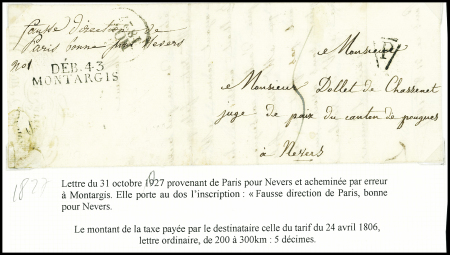 fausse direction de
Paris bonne pour Nevers
N°1
DÉB. 43
MONTARGIS
P
a Monsieur
Monsieur Dollet de Chassenet
juge de paix du canton de pougues
à Nevers
1827
8
Lettre du 31 octobre 1927 provenant de Paris pour Nevers et acheminée par erreur
à Montargis. Elle porte au dos l’inscription : « Fausse direction de Paris, bonne
pour Nevers.
Le montant de la taxe payée par le destinataire celle du tarif du 24 avril 1806,
lettre ordinaire, de 200 à 300km : 5 décimes.